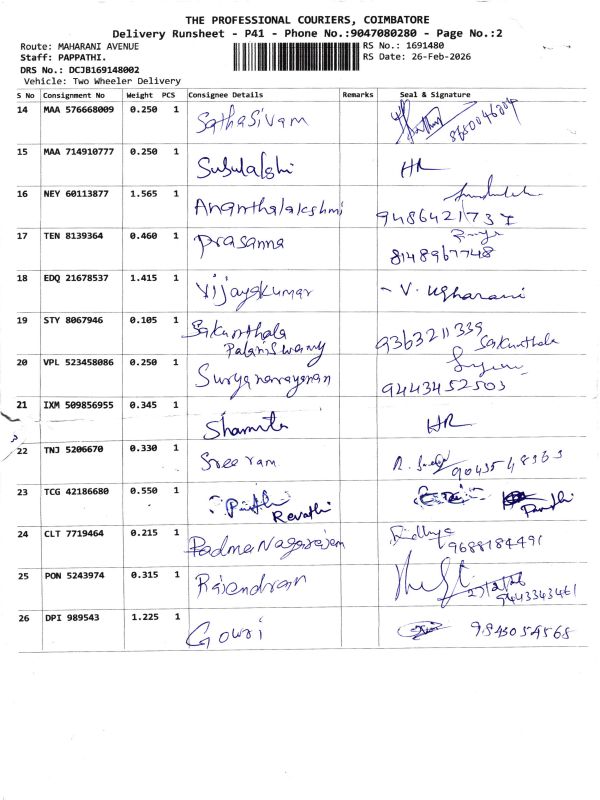 THE PROFESSIONAL COURIERS, COIMBATORE
Delivery Runsheet - P41 - Phone No.:9047080280 - Page No.:2
Route: MAHARANI AVENUE
RS No.: 1691480
Staff: PAPPATHI.
RS Date: 26-Feb-2026
DRS No.: DCJB169148002
Vehicle: Two Wheeler Delivery
S No Consignment No Weight PCS Consignee Details Remarks Seal & Signature
14 MAA 576668009 0.250 1 Sathasivam
15 MAA 714910777 0.250 1 HR
16 NEY 60113877 1.565 1 Ananthalakshmi
17 TEN 8139364 0.460 1 Prasanna
8148967748
18 EDQ 21678537 1.415 1 Vijayakumar - V.
19 STY 8067946 0.105 1 Sakunthala
Palaniswamy
9363211339
Sakunthala
20 VPL 523458086 0.250 1 Suryanarayanan
9443452503
21 IXM 509856955 0.345 1 HR
22 TNJ 5206670 0.330 1 Sree ram
23 TCG 42186680 0.550 1
Revathi
24 CLT 7719464 0.215 1 Padma Nagarajan
9688184491
25 PON 5243974 0.315 1 Rajendran
9443343461
26 DPI 989543 1.225 1 Gowri 9843054568